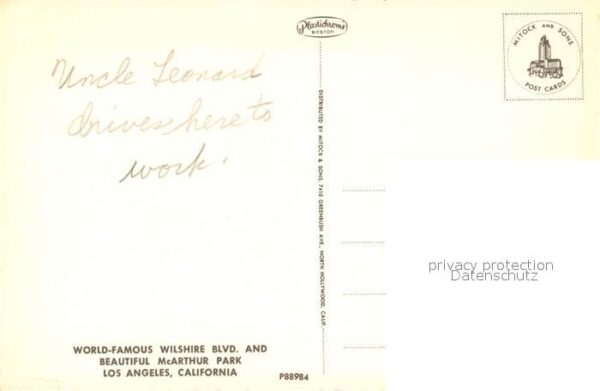 Plastichrome
BOSTON
MITOCK AND SONS
POST CARDS
Uncle Leonard
drives here to
work.
DISTRIBUTED BY MITOCK & SONS, 7410 GREENBUSH AVE., NORTH HOLLYWOOD, CALIF.
privacy protection
Datenschutz
WORLD-FAMOUS WILSHIRE BLVD. AND
BEAUTIFUL McARTHUR PARK
LOS ANGELES, CALIFORNIA
P88984